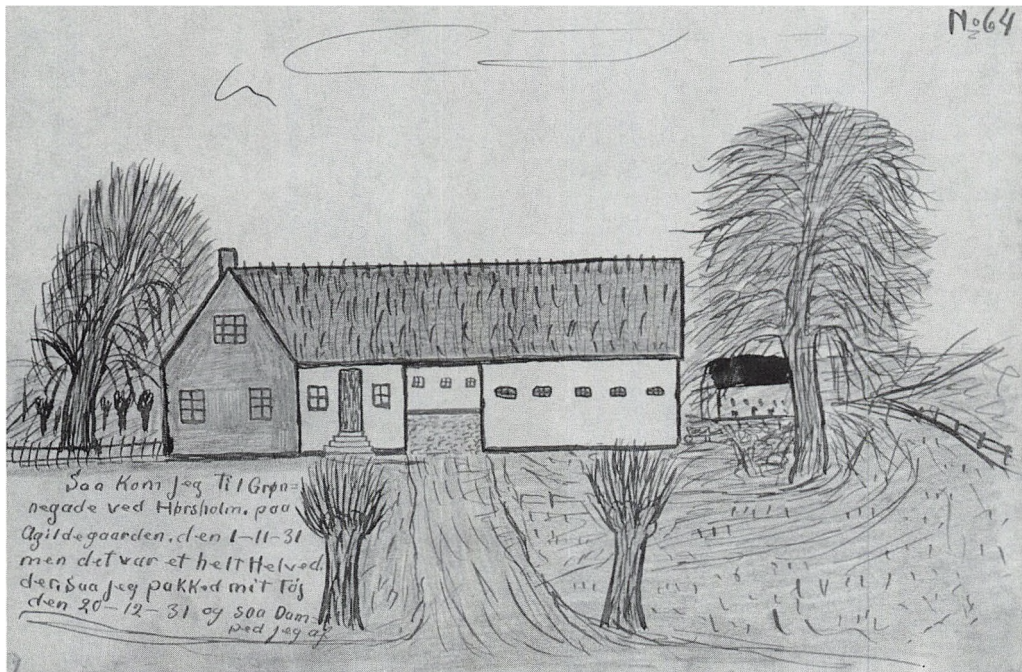 No 64
Saa Kom Jeg Til Grøn=
negade ved Hørsholm. paa
Agildegaarden. den 1-11-31
men det var et helt Helved.
der. Saa Jeg pakked mit Töj
den 20-12-31 og Saa Dam-
ped Jeg af